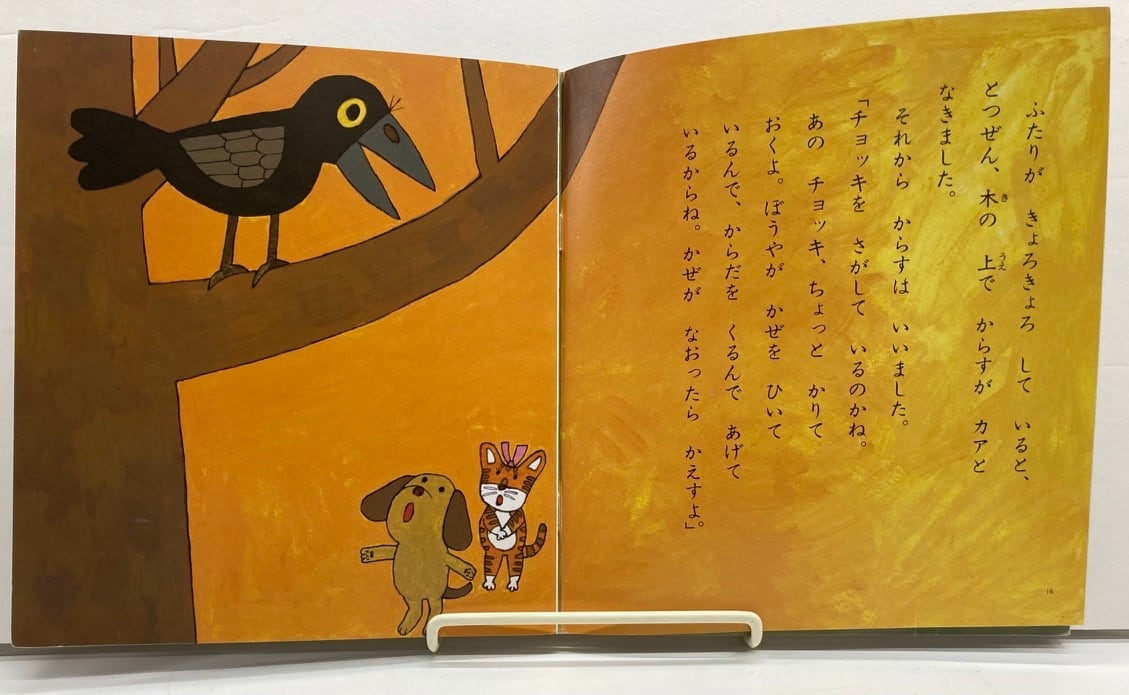 ふたりが　きょろきょろ　して　いると、
とつぜん、木の　上で　からすが　カアと
なきました。
それから　からすは　いいました。
「チョッキを　さがして　いるのかね。
あの　チョッキ、ちょっと　かりて
おくよ。ぼうやが　かぜを　ひいて
いるんで、からだを　くるんで　あげて
いるからね。かぜが　なおったら　かえすよ」。
16